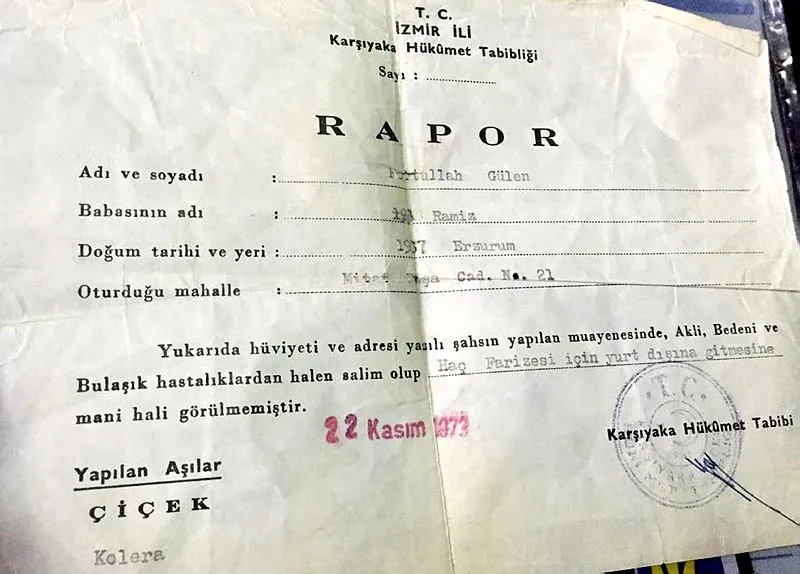 T. C.
İZMİR İLİ
Karşıyaka Hükûmet Tabibliği
Sayı :
RAPOR
Adı ve soyadı : Fettullah Gülen
Babasının adı : Ramiz
Doğum tarihi ve yeri : 1937 Erzurum
Oturduğu mahalle : Mitat Paşa Cad. No. 21
Yukarıda hüviyeti ve adresi yazılı şahsın yapılan muayenesinde, Akli, Bedeni ve
Bulaşık hastalıklardan halen salim olup Haç Farizesi için yurt dışına gitmesine
mani hali görülmemiştir.
22 Kasım 1973
T. C.
Karşıyaka Hükûmet Tabibi
Yapılan Aşılar
ÇİÇEK
Kolera